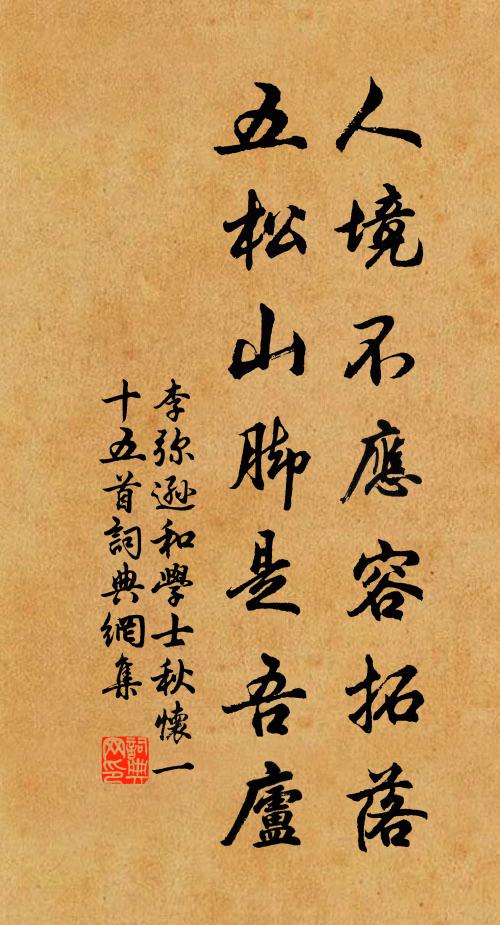 人境不應容拓落
五松山脚是吾廬
李弥遜和學士秋懷一
十五首詞典網集
詞典
网印